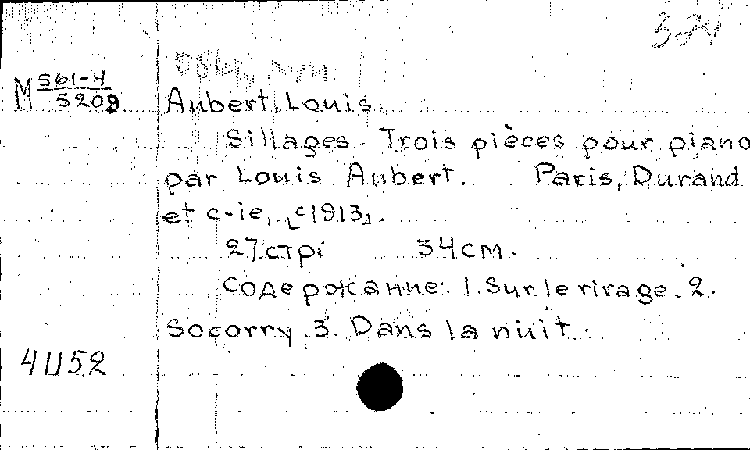 M 561-4
5209
Aubert, Louis.
Sillages. Trois pièces pour piano
par Louis Aubert. Paris, Durand
et c-ie, [c1913].
27 стр. 34 см.
Содержание: 1. Sur le rivage. 2.
Socorry. 3. Dans la nuit.